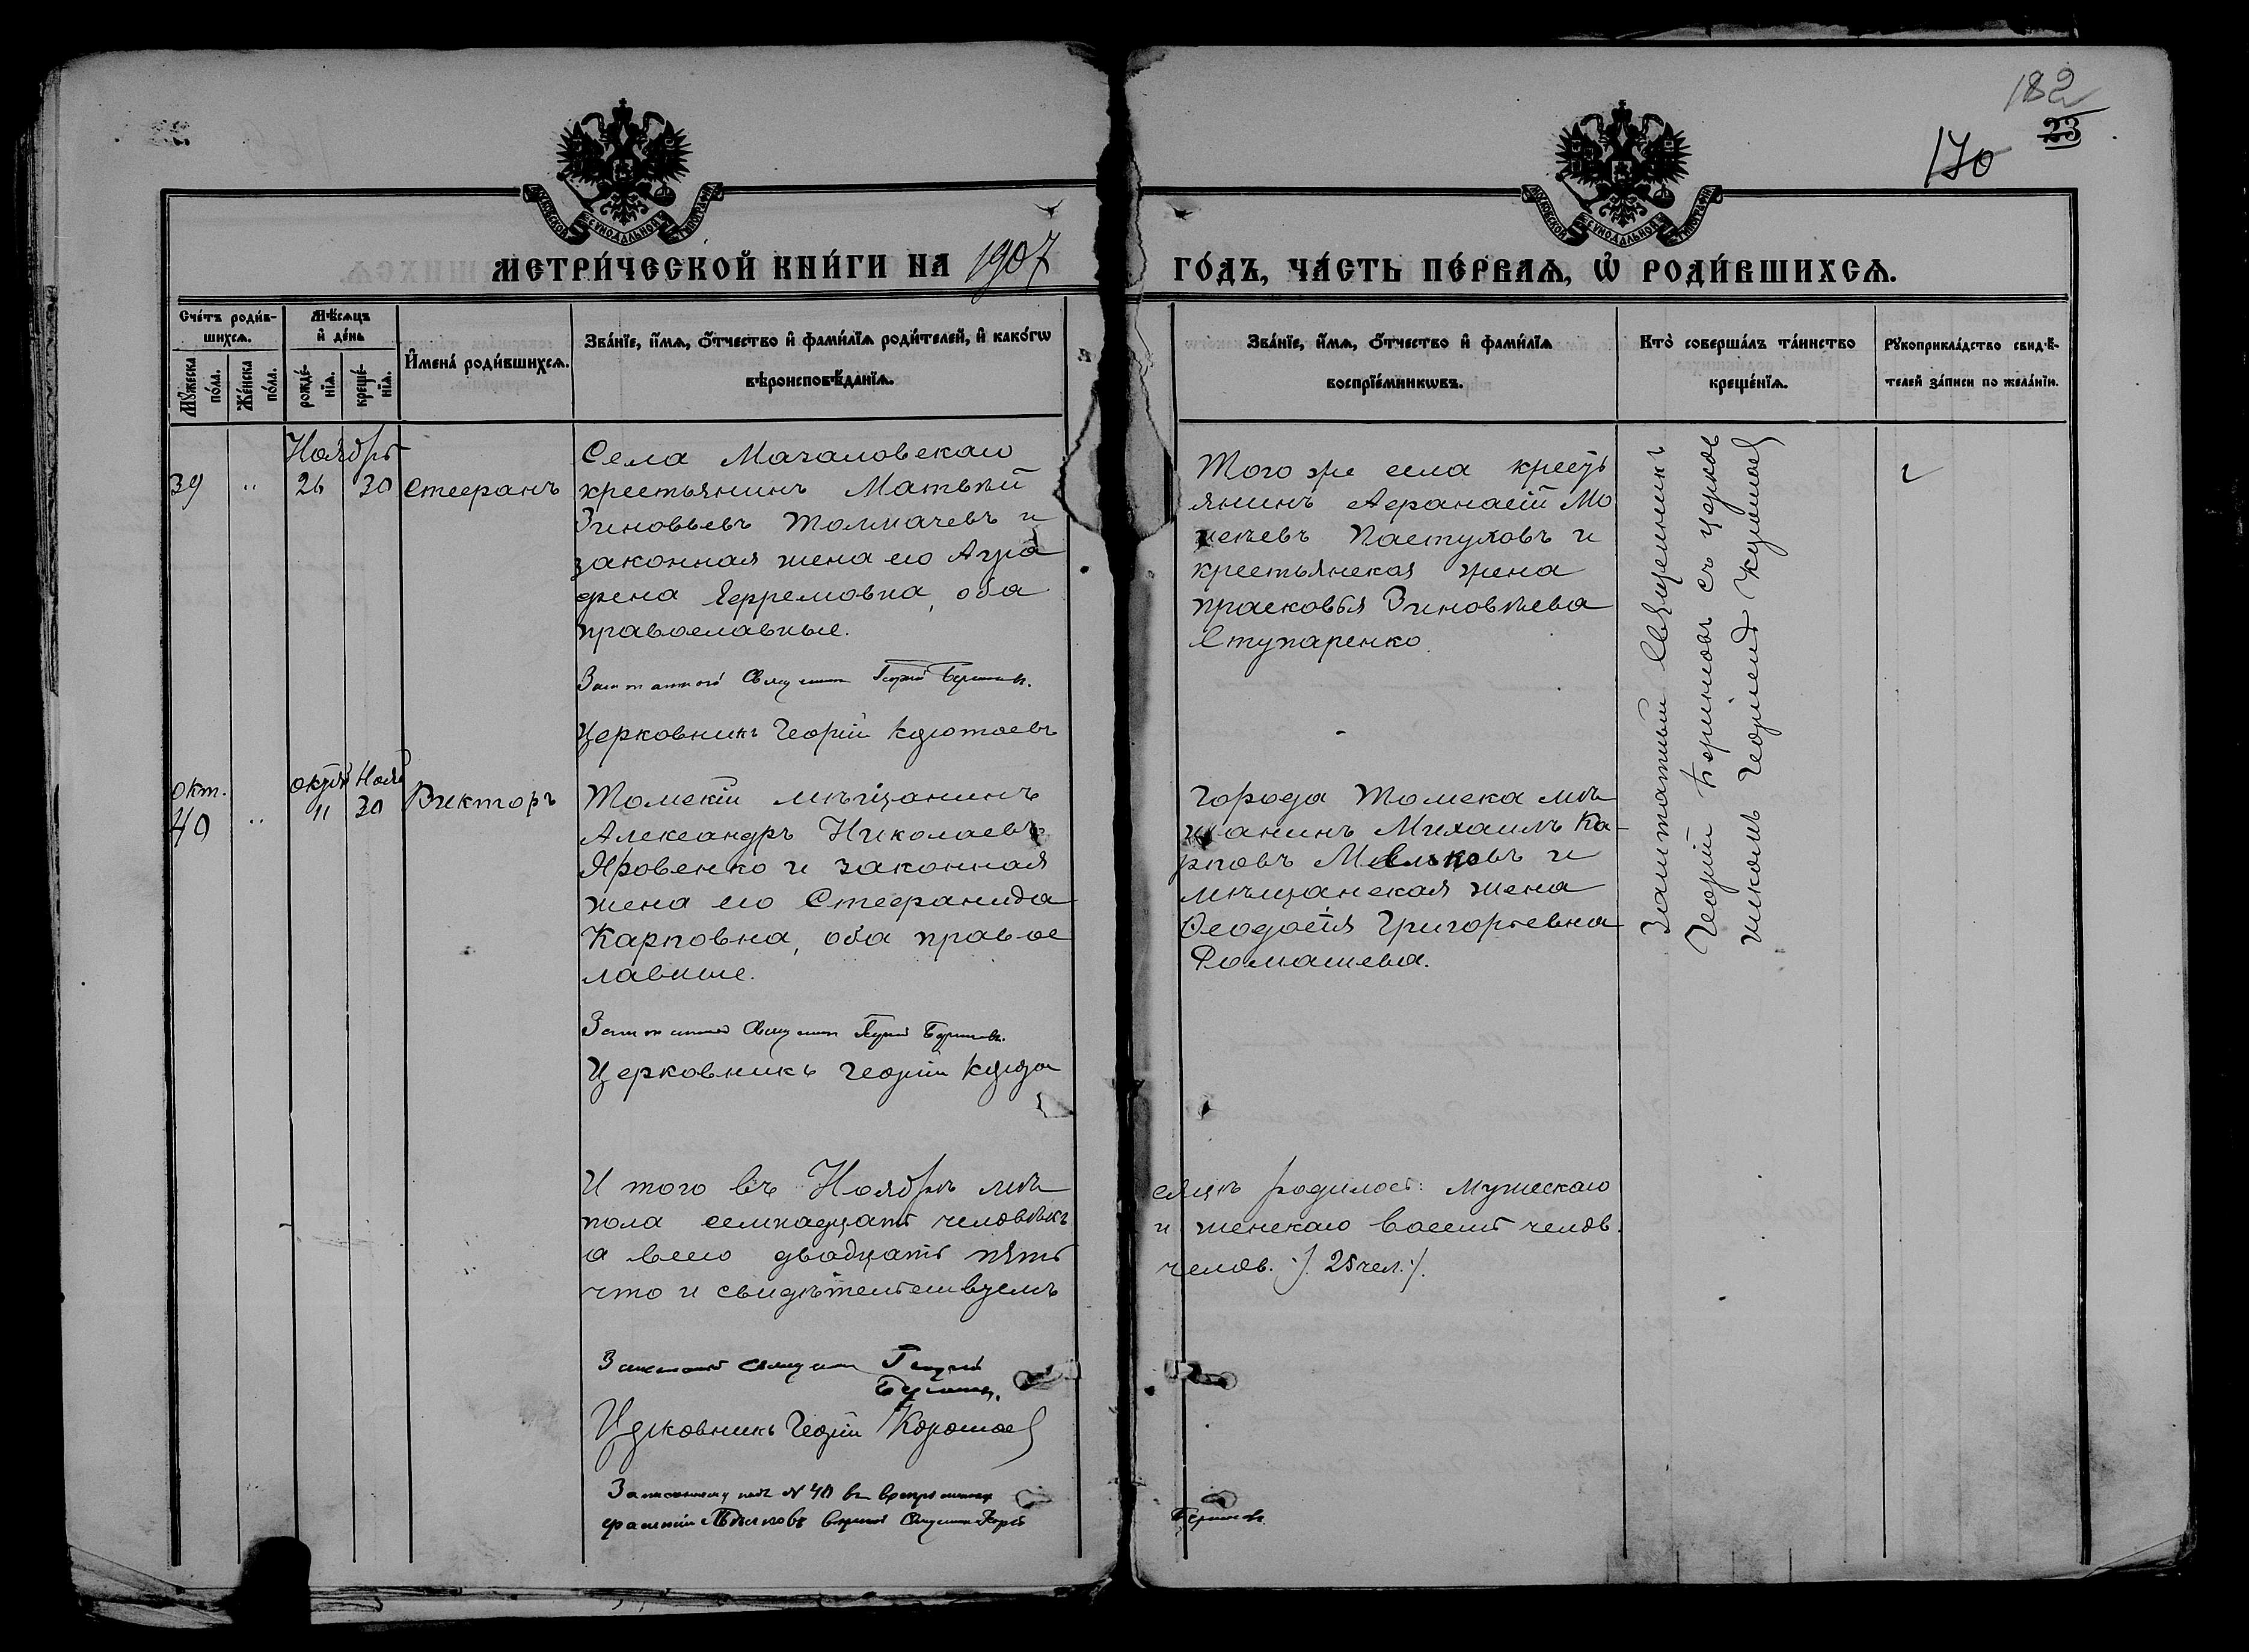 182
23
170
МЕТРИ́ЧЕСКОЙ КНИ́ГИ НА 1907 ГО́ДЪ, ЧА́СТЬ ПЕ́РВАѦ, Ѡ҆ РОДИ́ВШИХСѦ.
Сче́тъ роди́в-
шихсѧ.
Мꙋ́жеска по́ла.
Же́нска по́ла.
Мѣ́сѧцъ
и҆ де́нь
рожде́-
нїѧ.
креще́-
нїѧ.
И҆мена̀ роди́вшихсѧ.
Зва́нїе, и҆́мѧ, ѻ҆́тчество и҆ фами́лїѧ роди́телей, и҆ како́гѡ
вѣроисповѣ́данїѧ.
Зва́нїе, и҆́мѧ, ѻ҆́тчество и҆ фами́лїѧ
воспрїе́мникѡвъ.
Кто̀ соверша́лъ та́инство
креще́нїѧ.
Рꙋкоприкла́дство свидѣ́-
телей за́писи по жела́нїю.
Ноябрь
39 " 26 30 Стефанъ
Села
крестьянинъ Матвѣй
Зиновьевъ Толмачевъ и
законная жена его Агра
фена Ефремовна, оба
православные.
Заштатный Священникъ Георгій Беримовъ.
Церковникъ Георгій
Того же села кресть
янинъ Афанасій Мо
Пастуховъ и
крестьянская жена
Прасковья Зиновьева
Ступаренко.
Заштатный Священникъ
Георгій Беримовъ съ церков
никомъ Георгіемъ
окт. октяб Нояб
40 " 11 30 Викторъ
Томскій мѣщанинъ
Александръ Николаевъ
Яровенко и законная
жена его Стефанида
Карповна, оба правос
лавные.
Заштатный Священникъ Георгій Беримовъ.
Церковникъ Георгій
города Томска мѣ
щанинъ Михаилъ Ка-
рповъ и
мѣщанская жена
Ѳеодосія Григорьевна
Ромашева.
И того въ Ноябрѣ мѣ сяцѣ родилось: мужескаго
пола семнадцать человѣкъ и женскаго восемь челов.
а всего двадцать пять челов. ·/. 25 чел. ·/.
что и свидѣтельствуемъ
Заштатный Священникъ Георгій
Беримовъ.
Церковникъ Георгій
Записанному подъ № 40 въ
фамиліи вѣрно Священникъ Георгій Беримовъ.